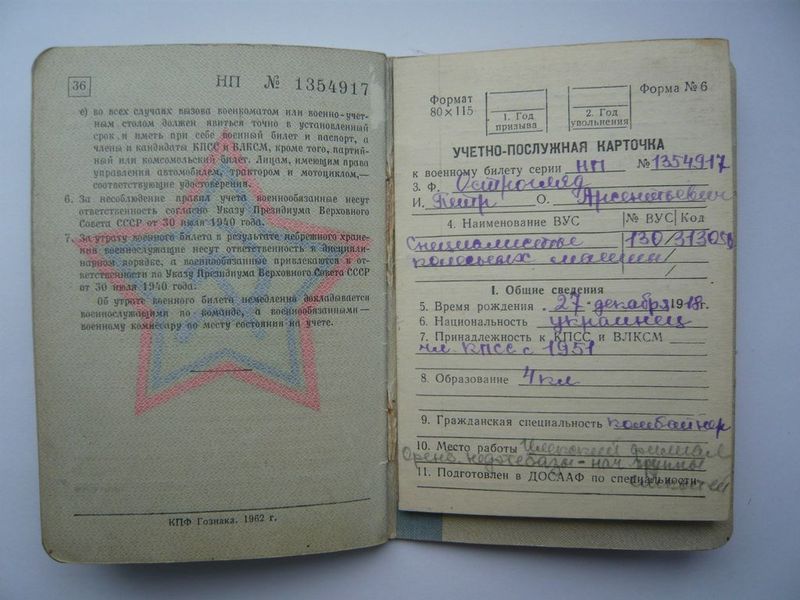 36
НП № 1354917
е) во всех случаях вызова военкоматом или военно-учет-
ным столом должен явиться точно в установленный
срок и иметь при себе военный билет и паспорт, а
члены и кандидаты КПСС и ВЛКСМ, кроме того, партий-
ный или комсомольский билет. Лицам, имеющим права
управления автомобилем, трактором и мотоциклом,—
соответствующие удостоверения.
6. За несоблюдение правил учета военнообязанные несут
ответственность согласно Указу Президиума Верховного
Совета СССР от 30 июля 1940 года.
7. За утрату военного билета в результате небрежного хране-
ния военнослужащие несут ответственность в дисципли-
нарном порядке, а военнообязанные привлекаются к от-
ветственности по Указу Президиума Верховного Совета СССР
от 30 июля 1940 года.
Об утрате военного билета немедленно докладывается
военнослужащими по команде, а военнообязанными—
военному комиссару по месту состояния на учете.
КПФ Гознака. 1962 г.
Формат
80×115
1. Год
призыва
2. Год
увольнения
Форма № 6
УЧЕТНО-ПОСЛУЖНАЯ КАРТОЧКА
к военному билету серии НП № 1354917
3. Ф. Острогляд
И. Петр О. Арсентьевич
4. Наименование ВУС № ВУС Код
130/3130
колесных машин
I. Общие сведения
5. Время рождения 27 декабря 1918 г.
6. Национальность украинец
7. Принадлежность к КПСС и ВЛКСМ
чл. КПСС с 1951
8. Образование 4 кл
9. Гражданская специальность комбайнер
10. Место работы филиал
нефтебазы - нач. группы
11. Подготовлен в ДОСААФ по специальности